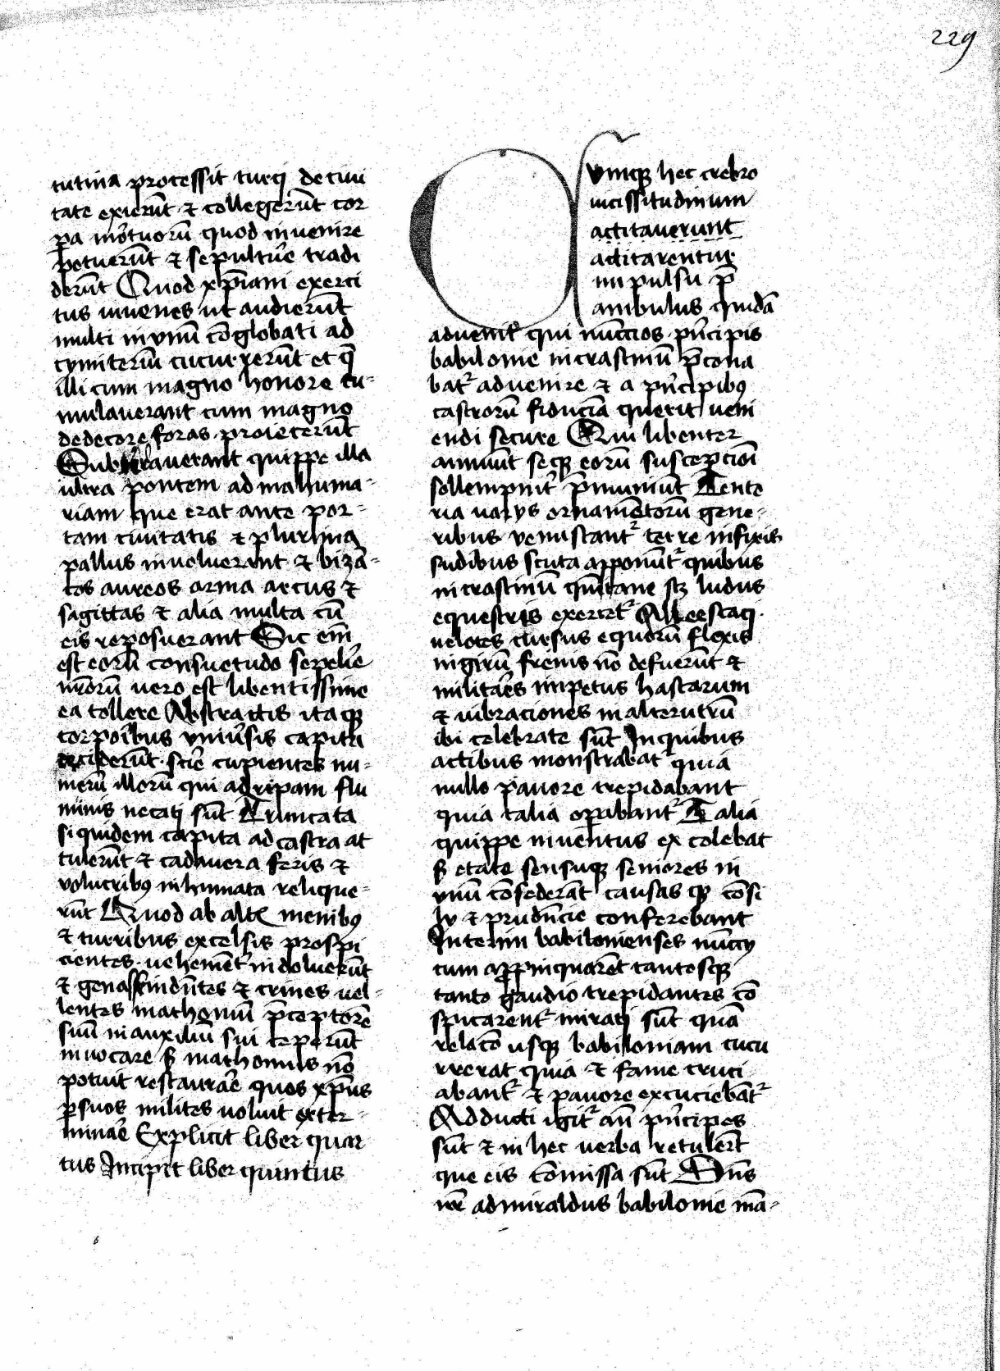 229
tutina processit turci de ciui
tate exierūt & collegerūt cor
pa mōtuorū quod inuenire
potuerūt & sepultūe tradi
derūt Quod xp̄iani exerci
tus iuuenes ut audierūt
multi in vnū cōglobati ad
cymiteriū cucurrerūt et q̄
illi cum magno honore tu-
mulaverant cum magno
dedecore foras proiecerūt
quippe illa
ultra pontem ad mahuma-
riam que erat ante por-
tam ciuitatis & plurima
pallus inuoluerant & bizā-
tos aureos arma arcus &
sagittas & alia multa cū
eis reposuerant Sic eīm
est eorū consuetudo sepelīe
nr̄orū vero est libentissime
ea tollere Abstractis itaq;
corpoībus vniūsis capita
sciē cupientes nu-
merū illorū qui ad ripam flu
minis necati sūt Truncata
siquidem capita ad castra at
tulerūt & cadavera feris &
volucribus inhumata relique-
rūt Quod ab altis menibus
& turribus excelsis prospi
cientes uehemēt' indoluerūt
& genas scindētes & crines uel-
lentes mathomū p̄ceptorē
suū in auxiliū sui ceperūt
inuocare s; mathomus nō
potuit restaurāe quos xp̄us
p suos milites uoluit exter-
mināe Explicit liber quar
tus Incipit liber quintus
Cumq; hec crebro
uicissitudinum
actitaverunt
actitarentur
impulsu p̄
ambulus quidā
aduenit qui nūccios p'ncipis
babilonie in crastinū p̄cona
bat' aduenire & a p'ncipibus
castrorū fiduciā querit ueni
endi secure Qui libenter
annuūt seq; eorū suscepcioi
sollempnit' p̄muniūt Tento
ria uariis ornamētorū gene-
ribus venustant' terre infixis
sudibus scuta apponūt' quibus
in crastinū quītane sc; ludus
equestris exercet' Alee scaq
uelotes cursus equorū flexis
in girū frenis nō defuerūt &
militāes impetus hastarum
& uibraciones in alterutrū
ibi celebrate sūt In quibus
actibus monstrabat' quia
nullo pauore trepidabant
quia talia opabant' Talia
quippe iuuentus excolebat
s; etate sensuq; seniores in
vnū cōsederāt causas q; cōsi
lii & prudēncie conferebant
Interim babilonienses nūccii
cum appinquarēt tantosq;
tanto gaudio trepidantes cō
spicarent' mirati sūt quā
relacō usq; babiloniam cucu
rrerat quia & fame cruci
abant' & pauore excuciebāt'
Adducti igit' aū p'ncipes
sūt & in hec uerba retulert
que eis cōmissa sūt Dn̄s
nr̄ admiraldus babilonie mā-